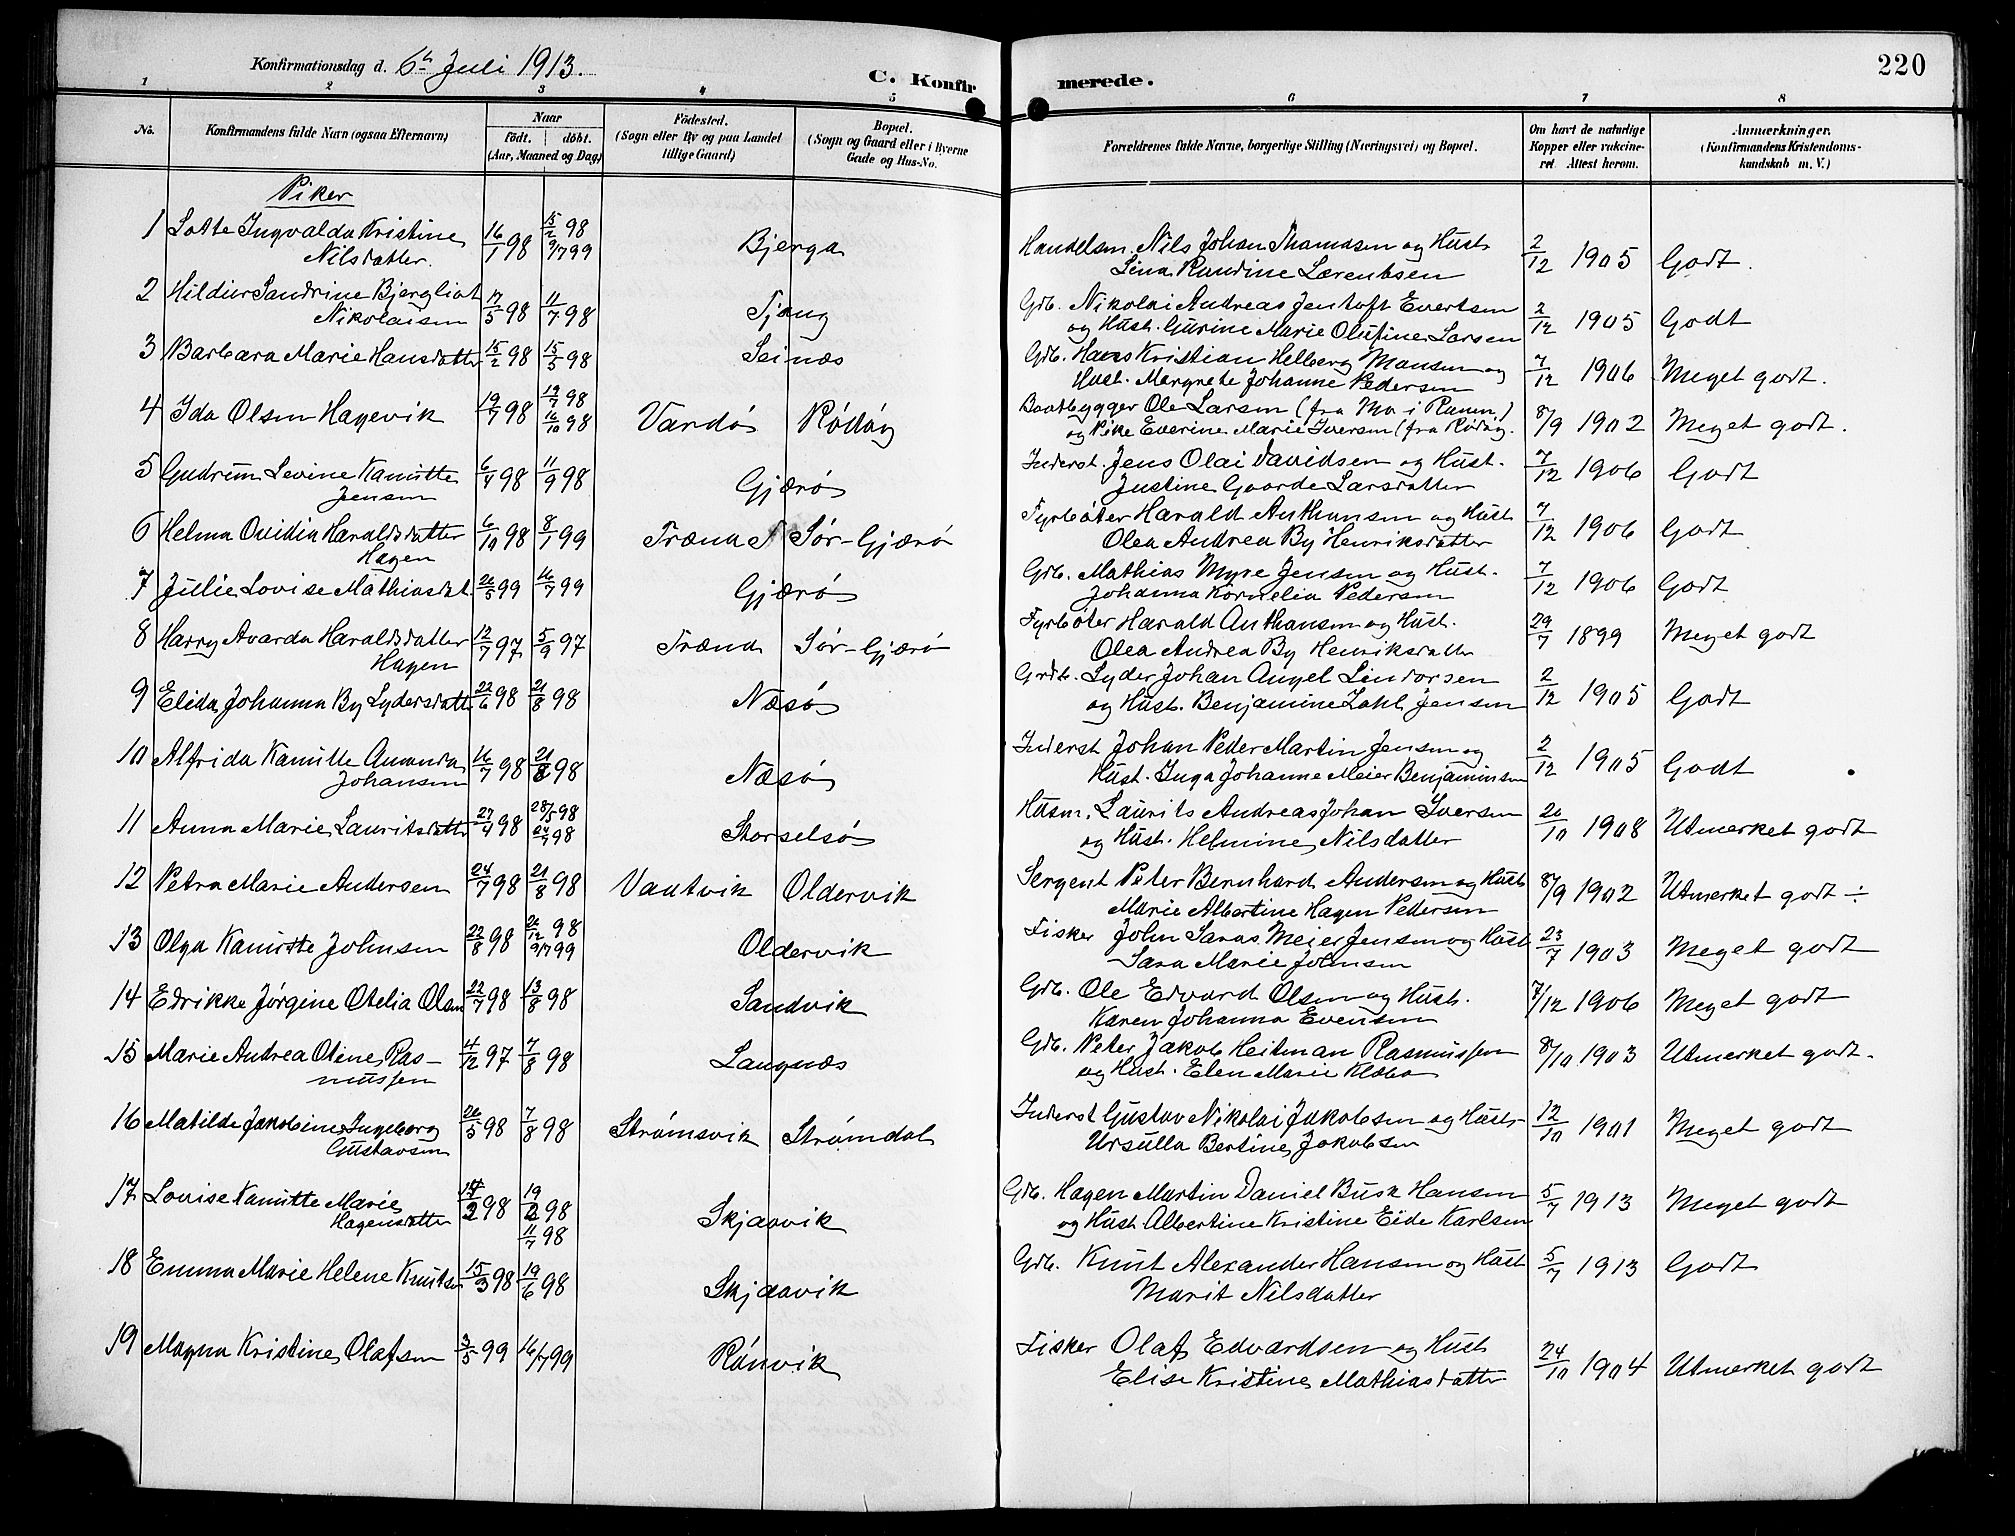 Konfirmationsdag d. 6te Juli 1913.
C. Konfirmerede.
220
1 2 3 4 5 6 7 8
No.
Konfirmandens fulde Navn (ogsaa Efternavn)
Naar
født. døbt.
(Aar, Maaned og Dag)
Födested.
(Sogn eller By og paa Landet
tillige Gaard)
Bopæl.
(Sogn og Gaard eller i Byerne
Gade og Hus-No.
Forældrenes fulde Navne, borgerlige Stilling (Næringsvei) og Bopæl.
Om havt de naturlige
Kopper eller vaccine-
ret. Attest herom.
Anmærkninger.
(Konfirmandens Kristendoms-
kundskab m. V.)
Piker
1 Lotte Ingvalda Kristine 16/1 98 15/2 98 Bjerga Handelsm. Nils Johan Thomasen og Hust. 2/12 1905 Godt.
Nilsdatter. 9/7 99 Lina Randine Lorentsen
2 Hildur Sandrine Bjergliot 17/5 98 11/7 98 Tjong Grb. Nikolai Andreas Jentoft Evertsen 2/12 1905 Godt
Nikolaisen og Hust. Gurine Marie Olufine Larsen
3 Barbara Marie Hansdatter 15/2 98 15/5 98 Seinæs Grb. Hans Kristian Helberg Monsen og 7/12 1906 Meget godt.
Hust. Margrete Johanne Pedersen
4 Ida Olsen Hagevik 19/7 98 Vandø Rødøy Baatbygger Ole Larsen (fra Mo i Ranen) 8/9 1902 Meget godt.
16/10 98 og Pike Everine Marie Iversen (fra Rødøy.
5 Gudrun Levine Kamitte 6/4 98 11/9 98 Gjærø Inderst. Jens Olai Davidsen og Hust. 7/12 1906 Godt
Jensen Justine Gaarde Larsdatter
6 Helma Ovidia Haraldsdatter 6/10 98 8/1 99 Træna Sør-Gjærø Fyrbøter Harald Anthonsen og Hust. 7/12 1906 Godt
Hagen Olea Andrea By Henriksdatter
7 Julie Lovise Mathiasdat. 20/5 99 16/7 99 Gjærø Grb. Mathias Myre Jensen og Hust. 7/12 1906 Godt
Johanna Kornelia Pedersen
8 Harry Avarda Haraldsdatter 12/7 97 5/9 97 Træna Sør-Gjærø Fyrbøter Harald Anthonsen og Hust. 29/7 1899 Meget godt
Hagen Olea Andrea By Henriksdatter
9 Elida Johanna By Lydersdatt. 22/6 98 21/8 98 Næsø Grdb. Lyder Johan Angel Lindorsen 2/12 1905 Godt
og Hust. Benjamine Zahl Jensen
10 Alfrida Kamitte Amanda 16/7 98 21/8 98 Næsø Inderst Johan Peder Martin Jensen og 2/12 1905 Godt
Johansen Hust. Inga Johanne Meier Benjaminsen
11 Anna Marie Lauritsdatter 27/4 98 28/5 98 Storselsø Husm. Laurits Andreas Johan Iversen 20/10 1908 Utmerket godt
og Hust. Helmine Nilsdatter
12 Petra Marie Andersen 24/7 98 21/8 98 Vautvik Oldervik Sergent Peter Bernhard Andersen og Hust. 8/9 1902 Utmerket godt ÷
Marie Albertine Hagen Pedersen
13 Olga Kamitte Johnsen 22/8 98 26/12 98 Oldervik Fisker John Saras Meier Jensen og Hust. 23/7 1903 Meget godt
9/7 99 Sara Marie Johnsen
14 Edrikke Jørgine Otelia Olsen 22/7 98 13/8 98 Sandvik Grb. Ole Edvard Olsen og Hust. 7/12 1906 Meget godt
Karen Johanna Evensen
15 Marie Andrea Oline Ras- 4/12 97 7/8 98 Langnæs Grb. Peter Jakob Heitman Rasmussen 8/10 1903 Utmerket godt.
mussen og Hust. Elen Marie Klæbo
16 Matilde Jakobine Ingeborg 20/5 98 7/8 98 Strømsvik Strømdal Inderst Gustav Nikolai Jakobsen og Hust. 12/10 1901 Meget godt
Gustavsen Ursulla Bertine Jakobsen
17 Lovise Kamitte Marie 98 19/2 98 Skjarvik Grb. Hagen Martin Daniel Busk Hansen 5/7 1913 Meget godt
Hagensdatter 11/7 98 og Hust Albertine Kristine Eide Karlsen
18 Emma Marie Helene Knutsen 15/3 98 19/6 98 Skjarvik Grb. Knut Alexander Hansen og Hust 5/7 1913 Godt
Marit Nilsdatter
19 Magna Kristine Olafsen 3/5 99 16/7 99 Rønvik Fisker Olaf Edvardsen og Hust 24/10 1904 Utmerket godt
Elise Kristine Mathiasdatter